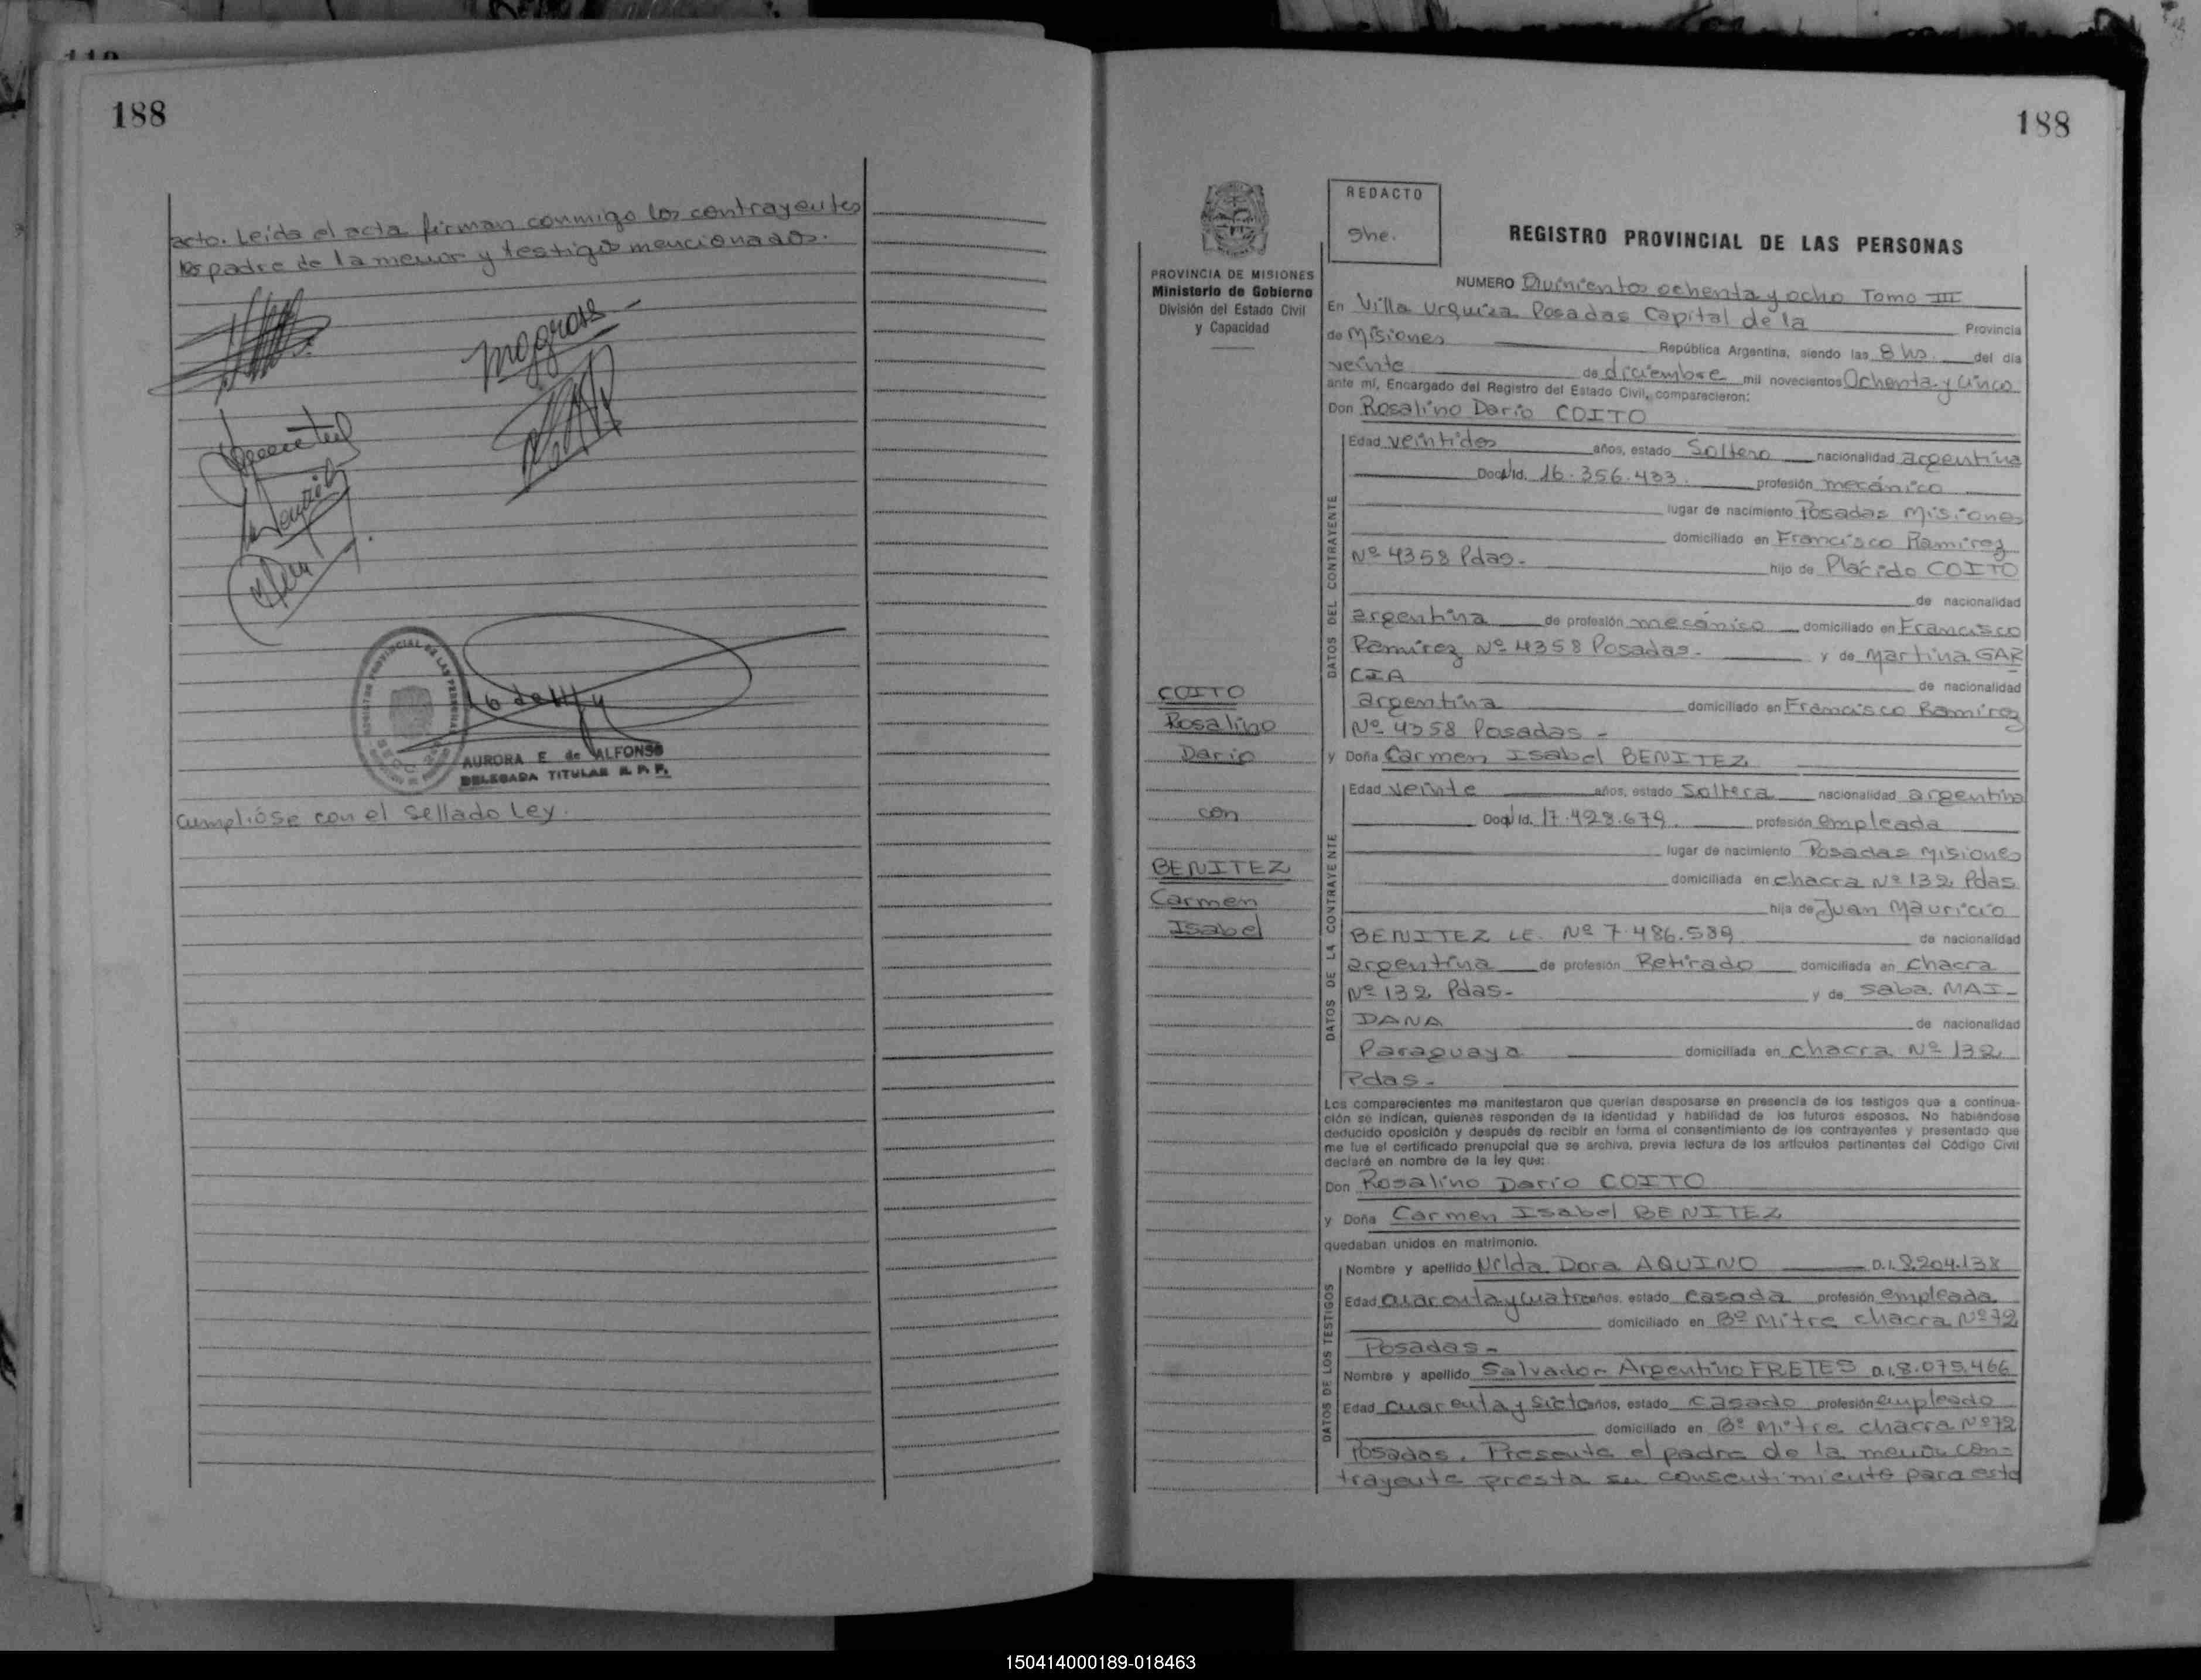 188
acto. Leída el acta firman conmigo los contrayentes
los padre de la menor y testigos mencionados.
AURORA E de ALFONSO
DELEGADA TITULAR R. P. P.
Cumplióse con el Sellado Ley.
188
REDACTO
She.
PROVINCIA DE MISIONES
Ministerio de Gobierno
División del Estado Civil
y Capacidad
COITO
Rosalino
Dario
con
BENITEZ
Carmen
Isabel
REGISTRO PROVINCIAL DE LAS PERSONAS
NUMERO Quinientos ochenta y ocho Tomo III
En Villa Urquiza Posadas Capital de la Provincia
de Misiones República Argentina, siendo las 8 hs. del día
veinte de diciembre mil novecientos Ochenta y cinco
ante mí, Encargado del Registro del Estado Civil, comparecieron:
Don Rosalino Dario COITO
DATOS DEL CONTRAYENTE
Edad veintidos años, estado Soltero nacionalidad argentina
Doc. Id. 16.356.433. profesión mecánico
lugar de nacimiento Posadas Misiones
domiciliado en Francisco Ramirez
Nº 4358 Pdas. hijo de Plácido COITO
de nacionalidad
argentina de profesión mecánico domiciliado en Francisco
Ramirez Nº 4358 Posadas. y de Martina GAR
CIA de nacionalidad
argentina domiciliado en Francisco Ramirez
Nº 4358 Posadas -
y Doña Carmen Isabel BENITEZ
DATOS DE LA CONTRAYENTE
Edad veinte años, estado Soltera nacionalidad argentina
Doc. Id. 17.428.679. profesión empleada
lugar de nacimiento Posadas Misiones
domiciliada en chacra Nº 132 Pdas
hija de Juan Mauricio
BENITEZ LE. Nº 7.486.589 de nacionalidad
argentina de profesión Retirado domiciliada en chacra
Nº 132 Pdas- y de Saba. MAI-
DANA de nacionalidad
Paraguaya domiciliada en chacra Nº 132
Pdas-
Los comparecientes me manifestaron que querían desposarse en presencia de los testigos que a continua-
ción se indican, quienes responden de la identidad y habilidad de los futuros esposos. No habiéndose
deducido oposición y después de recibir en forma el consentimiento de los contrayentes y presentado que
me fue el certificado prenupcial que se archiva, previa lectura de los artículos pertinentes del Código Civil
declaré en nombre de la ley que:
Don Rosalino Dario COITO
y Doña Carmen Isabel BENITEZ
quedaban unidos en matrimonio.
DATOS DE LOS TESTIGOS
Nombre y apellido Nilda Dora AQUINO D.I. 8.204.138
Edad cuarenta y cuatro años, estado casada profesión empleada
domiciliado en Bº Mitre chacra Nº 72
Posadas-
Nombre y apellido Salvador Argentino FRETES D.I. 8.075.466
Edad cuarenta y siete años, estado casado profesión empleado
domiciliado en Bº Mitre chacra Nº 72
Posadas. Presente el padre de la menor con-
trayente presta su consentimiento para este
150414000189-018463